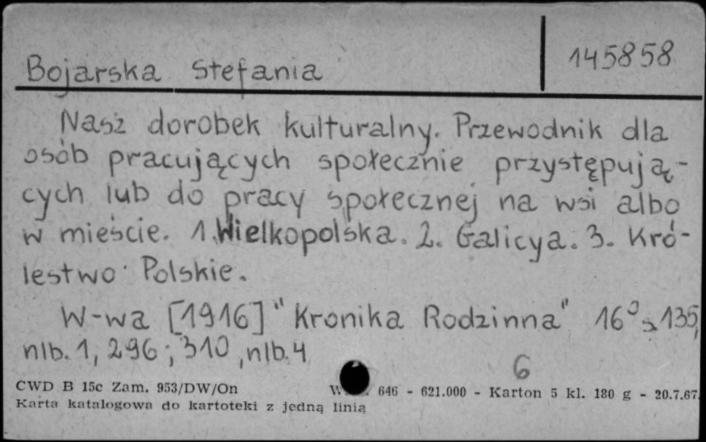 Bojarska Stefania
145858
Nasz dorobek kulturalny. Przewodnik dla
osób pracujących społecznie przystępują-
cych lub do pracy społecznej na wsi albo
w mieście. 1. Wielkopolska. 2. Galicya. 3. Kró-
lestwo Polskie.
W-wa [1916] "Kronika Rodzinna" 16° s. 135,
nlb. 1, 296; 310, nlb. 4
6
CWD B 15c Zam. 953/DW/On 646 - 621.000 - Karton 5 kl. 180 g - 20.7.67.
Karta katalogowa do kartoteki z jedną linią